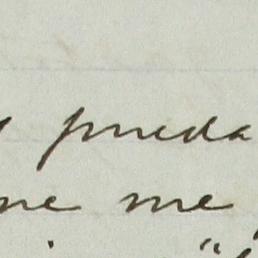 pueda
ne me
"